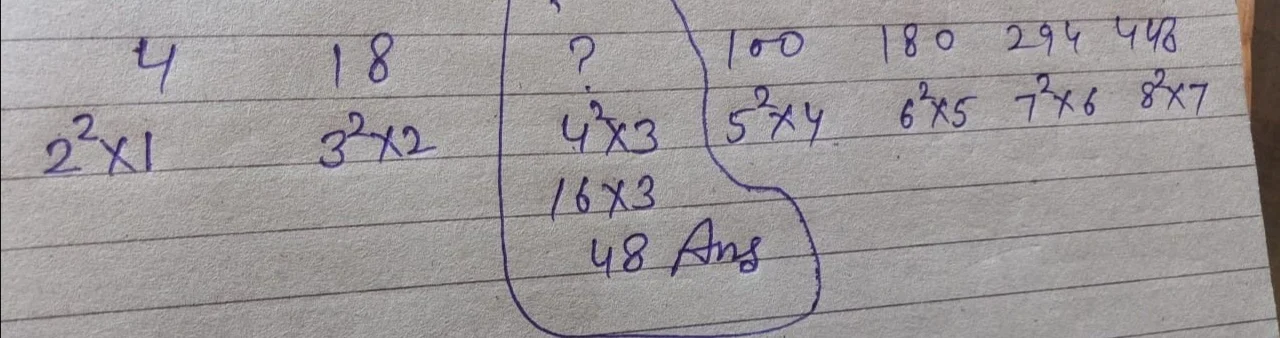 4 18 ? 100 180 294 448
2²×1 3²×2 4²×3 5²×4 6²×5 7²×6 8²×7
16×3
48 Ans